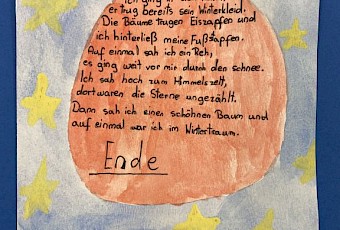 ich ging in
er trug bereits sein Winterkleid.
Die Bäume trugen Eiszapfen und
ich hinterließ meine Fußstapfen.
Auf einmal sah ich ein Reh,
es ging weit vor mir durch den schnee.
Ich sah hoch zum Himmelszelt,
dort waren die Sterne ungezählt.
Dann sah ich einen schöhnen Baum und
auf einmal war ich im Wintertraum.
Ende